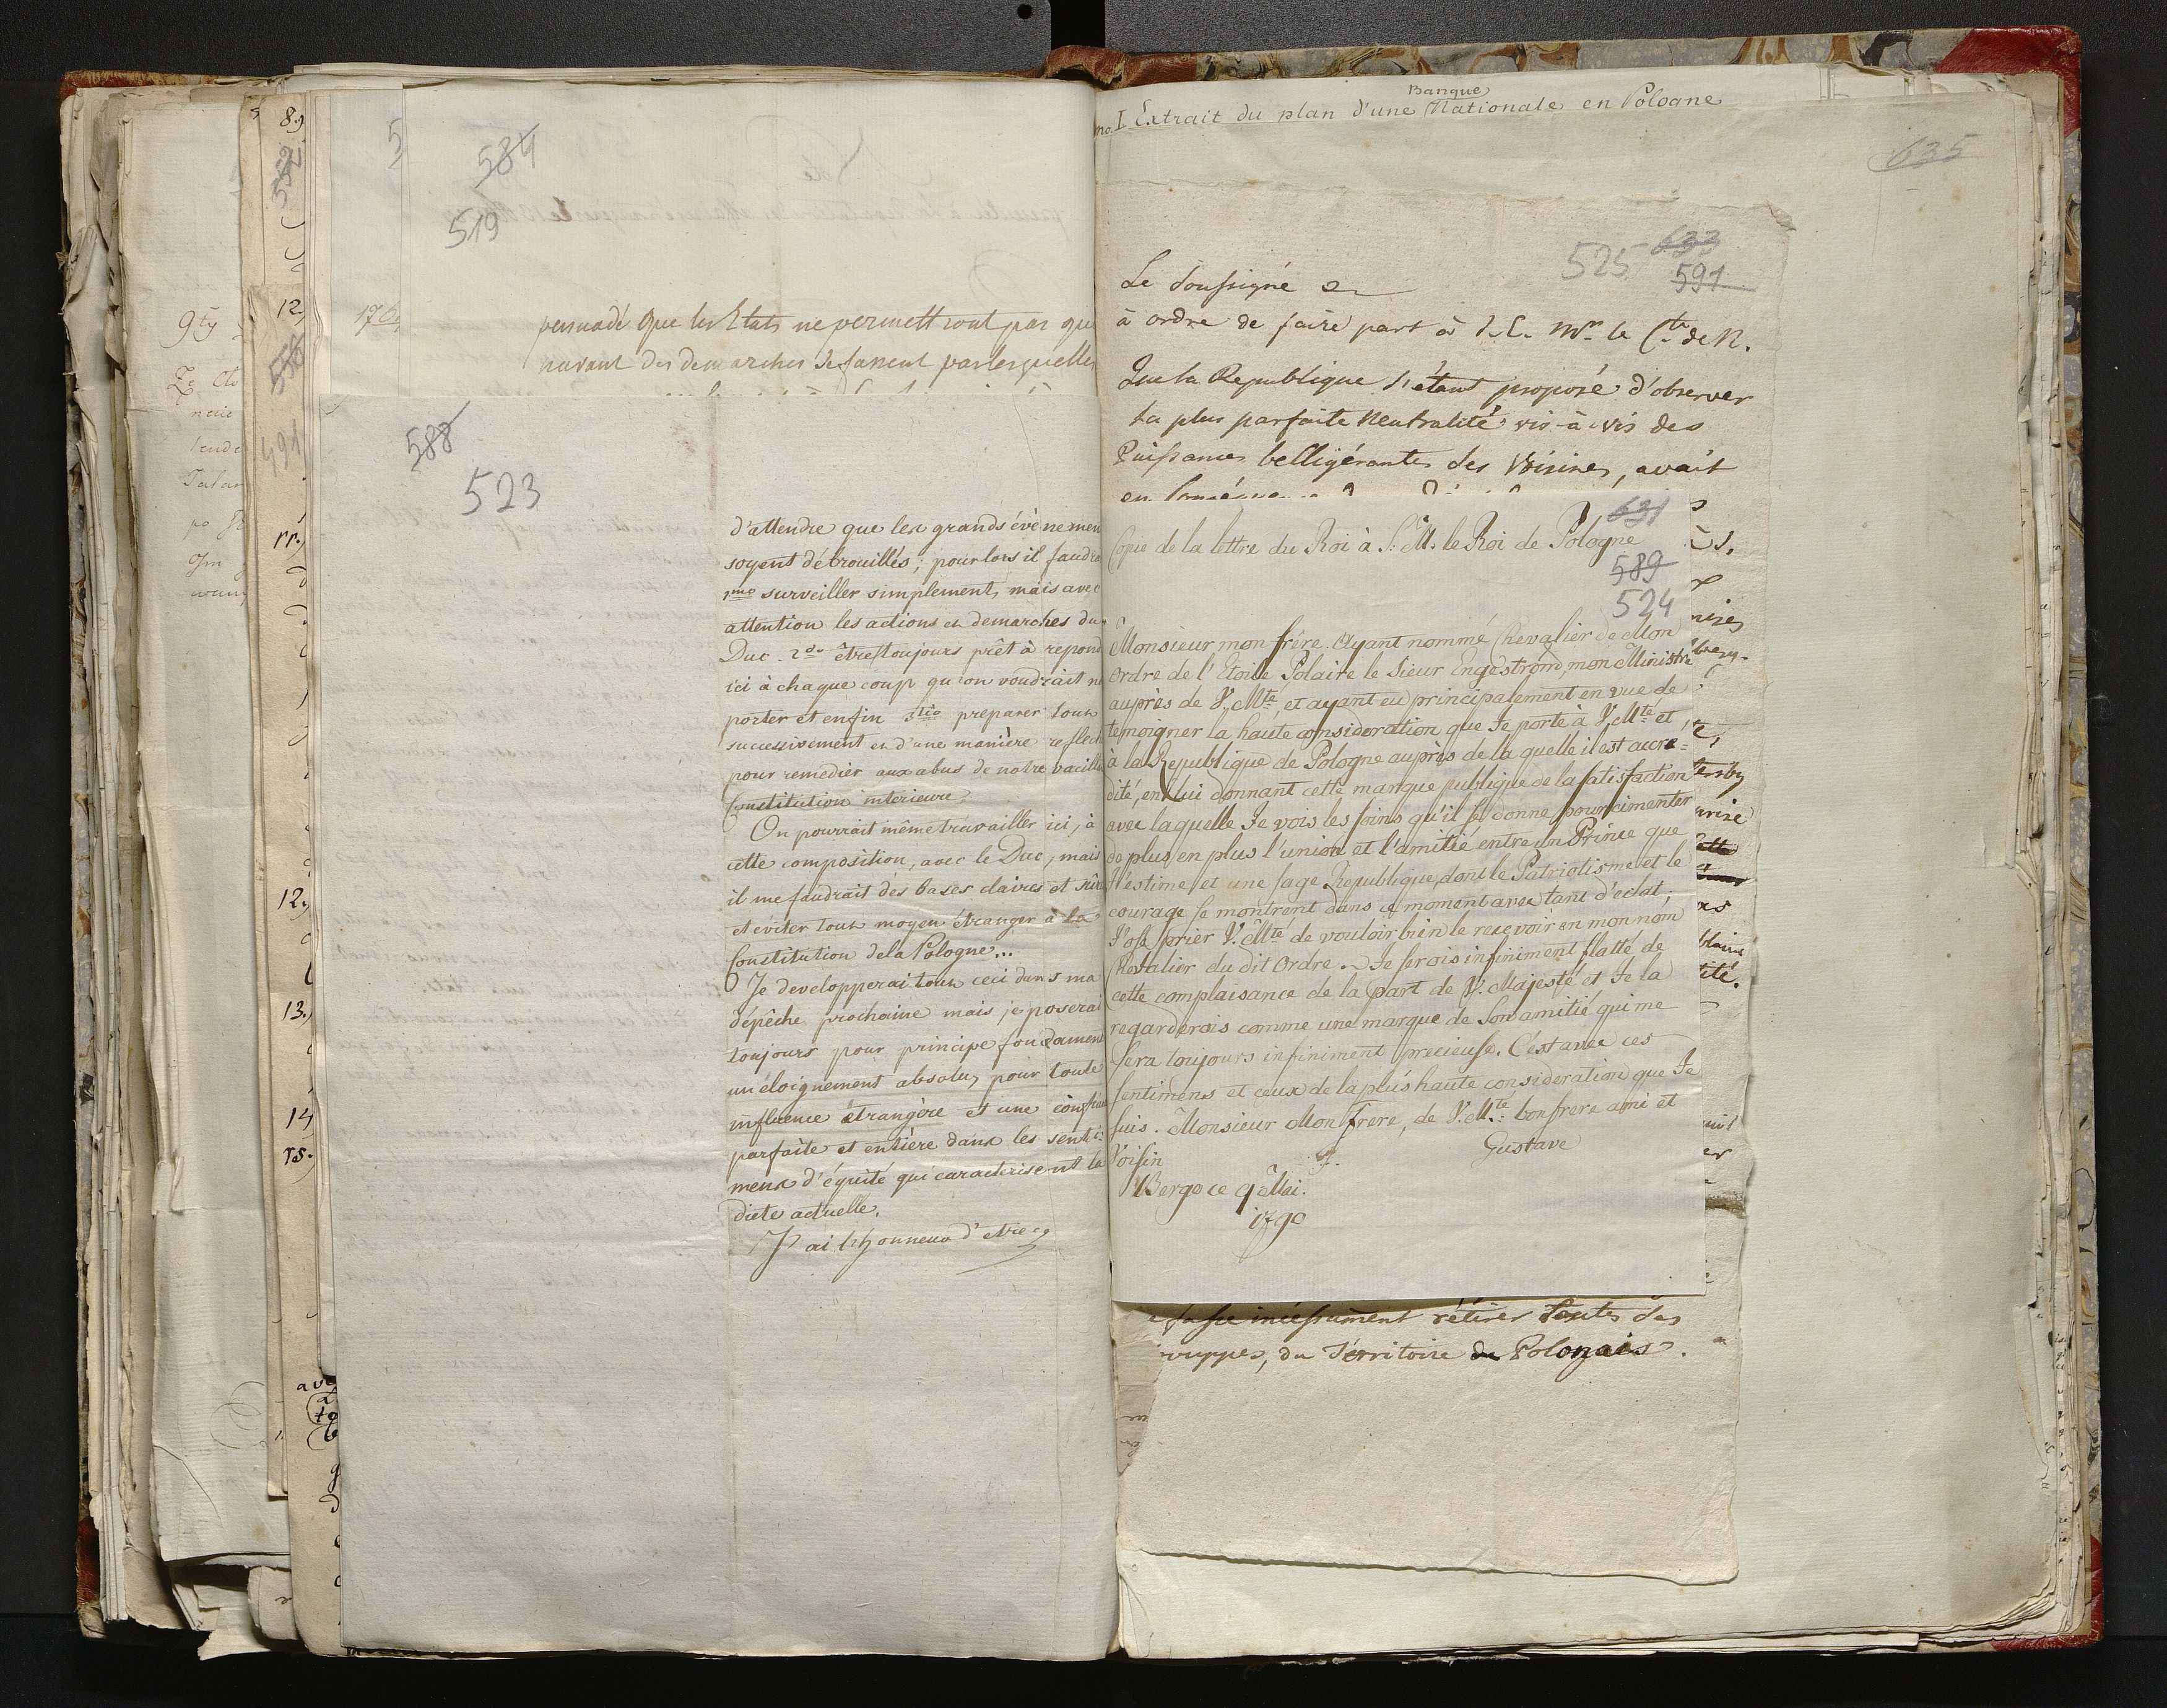 584
519
176
persuadé que les Etats ne permettront pas que
navant des demarches se fassent par lesquelles
588
523
d'attendre que les grands évènemen
soyent débrouillés; pour lors il faudra
1mo surveiller simplement, mais avec
attention les actions et demarches du
Duc. 2do être toujours prêt à repond
ici à chaque coup qu'on voudrait n
porter et enfin 3tio preparer tout
successivement et d'une manière reflech
pour remedier aux abus de notre vacilla
Constitution interieure.
On pourrait même travailler ici, à
cette composition, avec le Duc, mais
il me faudrait des bases claires et sûre
et eviter tout moyen étranger à la
Constitution de la Pologne...
Je developperai tout ceci dans ma
dépêche prochaine mais je poserai
toujours pour principe fondament
un éloignement absolu, pour toute
influence étrangère et une confian
parfaite et entière dans les senti=
mens d'équité qui caracterisent la
diete actuelle.
J'ai l'honneur d'etre
89
582
12
491
9ty
11.
12.
13.
14
15.
Banque
no. I Extrait du plan d'une Nationale en Pologne
635
633
525 591
Le soussigné
à ordre de faire part à S.E. Mr. le Cte de N.
Que la Republique s'étant proposé d'observer
la plus parfaite Neutralité vis-à-vis des
Puissances belligérantes ses Voisines, avait
631
Copie de la lettre du Roi à S. M. le Roi de Pologne
589
524
Monsieur mon frère. Ayant nommé Chevalier de Mon
Ordre de l'Etoile Polaire le Sieur Engeström, mon Ministre
auprès de V. Mté, et ayant eu principalement en vue de
temoigner la haute consideration que Je porte à V. Mté et
à la Republique de Pologne auprès de la quelle il est accré=
dité, en lui donnant cette marque publique de la satisfaction
avec laquelle Je vois les soins qu'il se donne pour cimenter
de plus en plus l'union et l'amitié entre un Prince que
J'estime et une sage Republique, dont le Patriotisme et le
courage se montrent dans ce moment avec tant d'eclat;
J'ose prier V. Mté de vouloir bien le recevoir en mon nom
Chevalier du dit Ordre. Je serois infiniment flatté de
cette complaisance de la part de V. Majesté et Je la
regarderois comme une marque de Son amitié qui me
sera toujours infiniment precieuse. C'est avec ces
sentimens et ceux de la plus haute consideration que Je
suis. Monsieur Mon Frere, de V. Mté: bon frere ami et
Voisin
Gustave
Borgo ce 9 Mai.
1790
fasse incessament rétirer toutes ses
trouppes, du Térritoire Polonais.